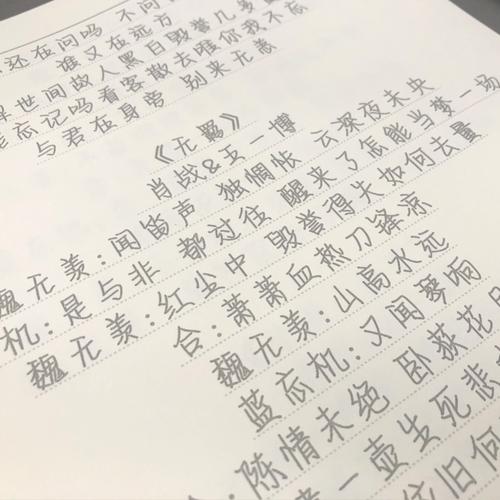 还在问吗 不问
谁又在远方
世间故人黑白毁誉几多重
忘记吗看客散去唯你我不忘
与君在身旁 别来无恙
《无羁》
肖战&王一博
魏无羡:闻笛声 独惆怅 云深夜未央
机:是与非 都过往 醒来了怎能当梦一场
魏无羡:红尘中 毁誉得失如何去量
合:萧萧血热刀锋凉
魏无羡:山高水远
蓝忘机:又闻琴响
合:陈情未绝 卧荻花月
一壶生死悲
旧何